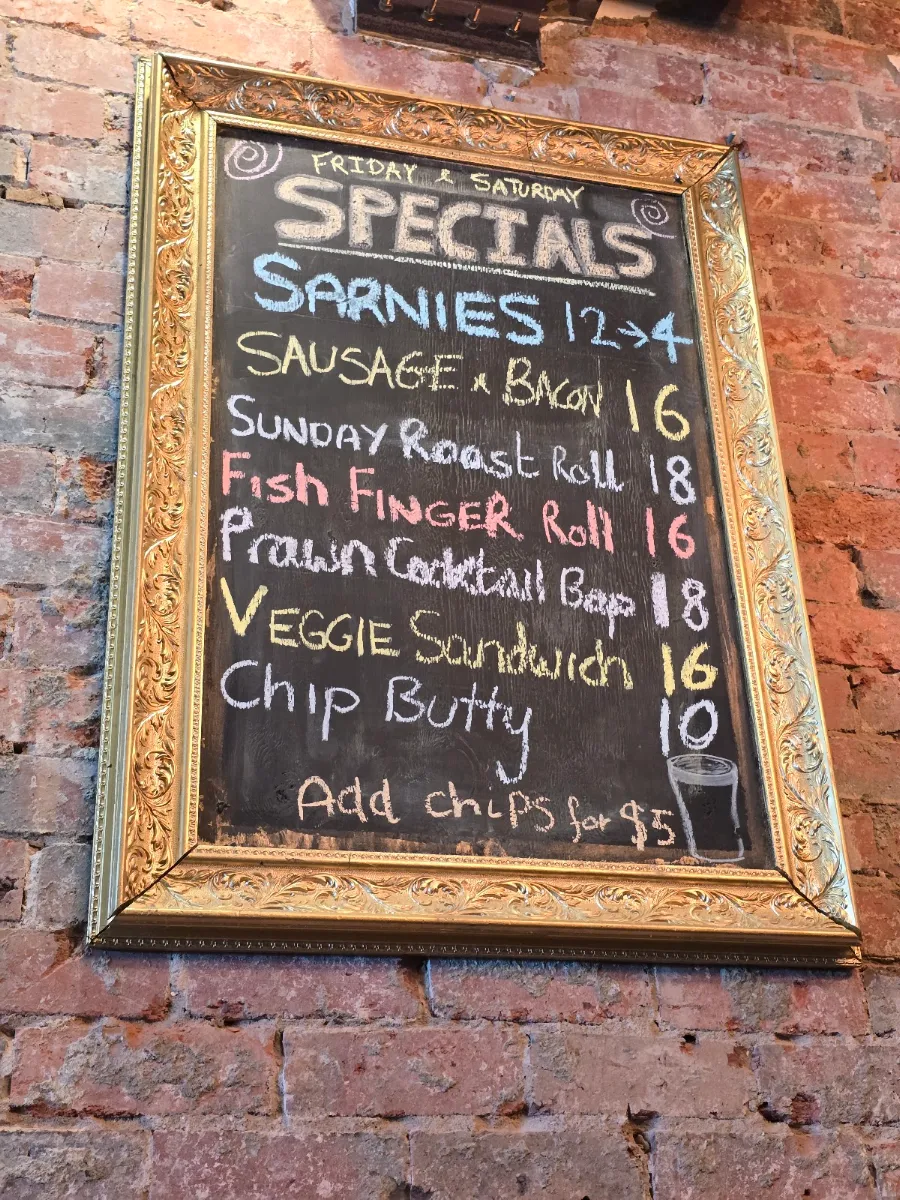 FRIDAY & SATURDAY
SPECIALS
SARNIES 12→4
SAUSAGE & BACON 16
SUNDAY Roast Roll 18
Fish FINGER Roll 16
Prawn Cocktail Bap 18
VEGGIE Sandwich 16
Chip Butty 10
Add chips for $5